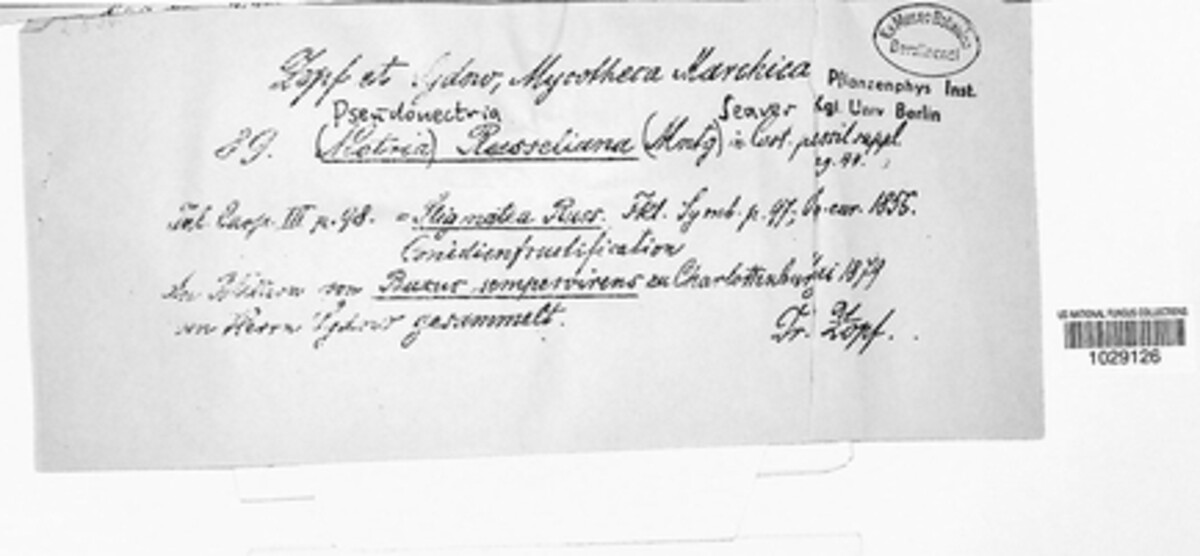 Ex Museo Botanico
Berolinensi
Zopf et Sydow, Mycotheca Marchica
Pflanzenphys Inst.
Kgl. Univ Berlin
Pseudonectria Seaver
89. (Nectria) Rousseliana (Mntg) in Cast. suppl.
Tul. Carp. III p. 98. = Stigmatea Rouss. Fkl. Symb. p. 97; 1855.
Conidienfructification
An von Buxus sempervirens zu Charlottenburg 1879
von Herrn Sydow gesammelt.
Dr. Zopf.
US NATIONAL FUNGUS COLLECTIONS
1029126